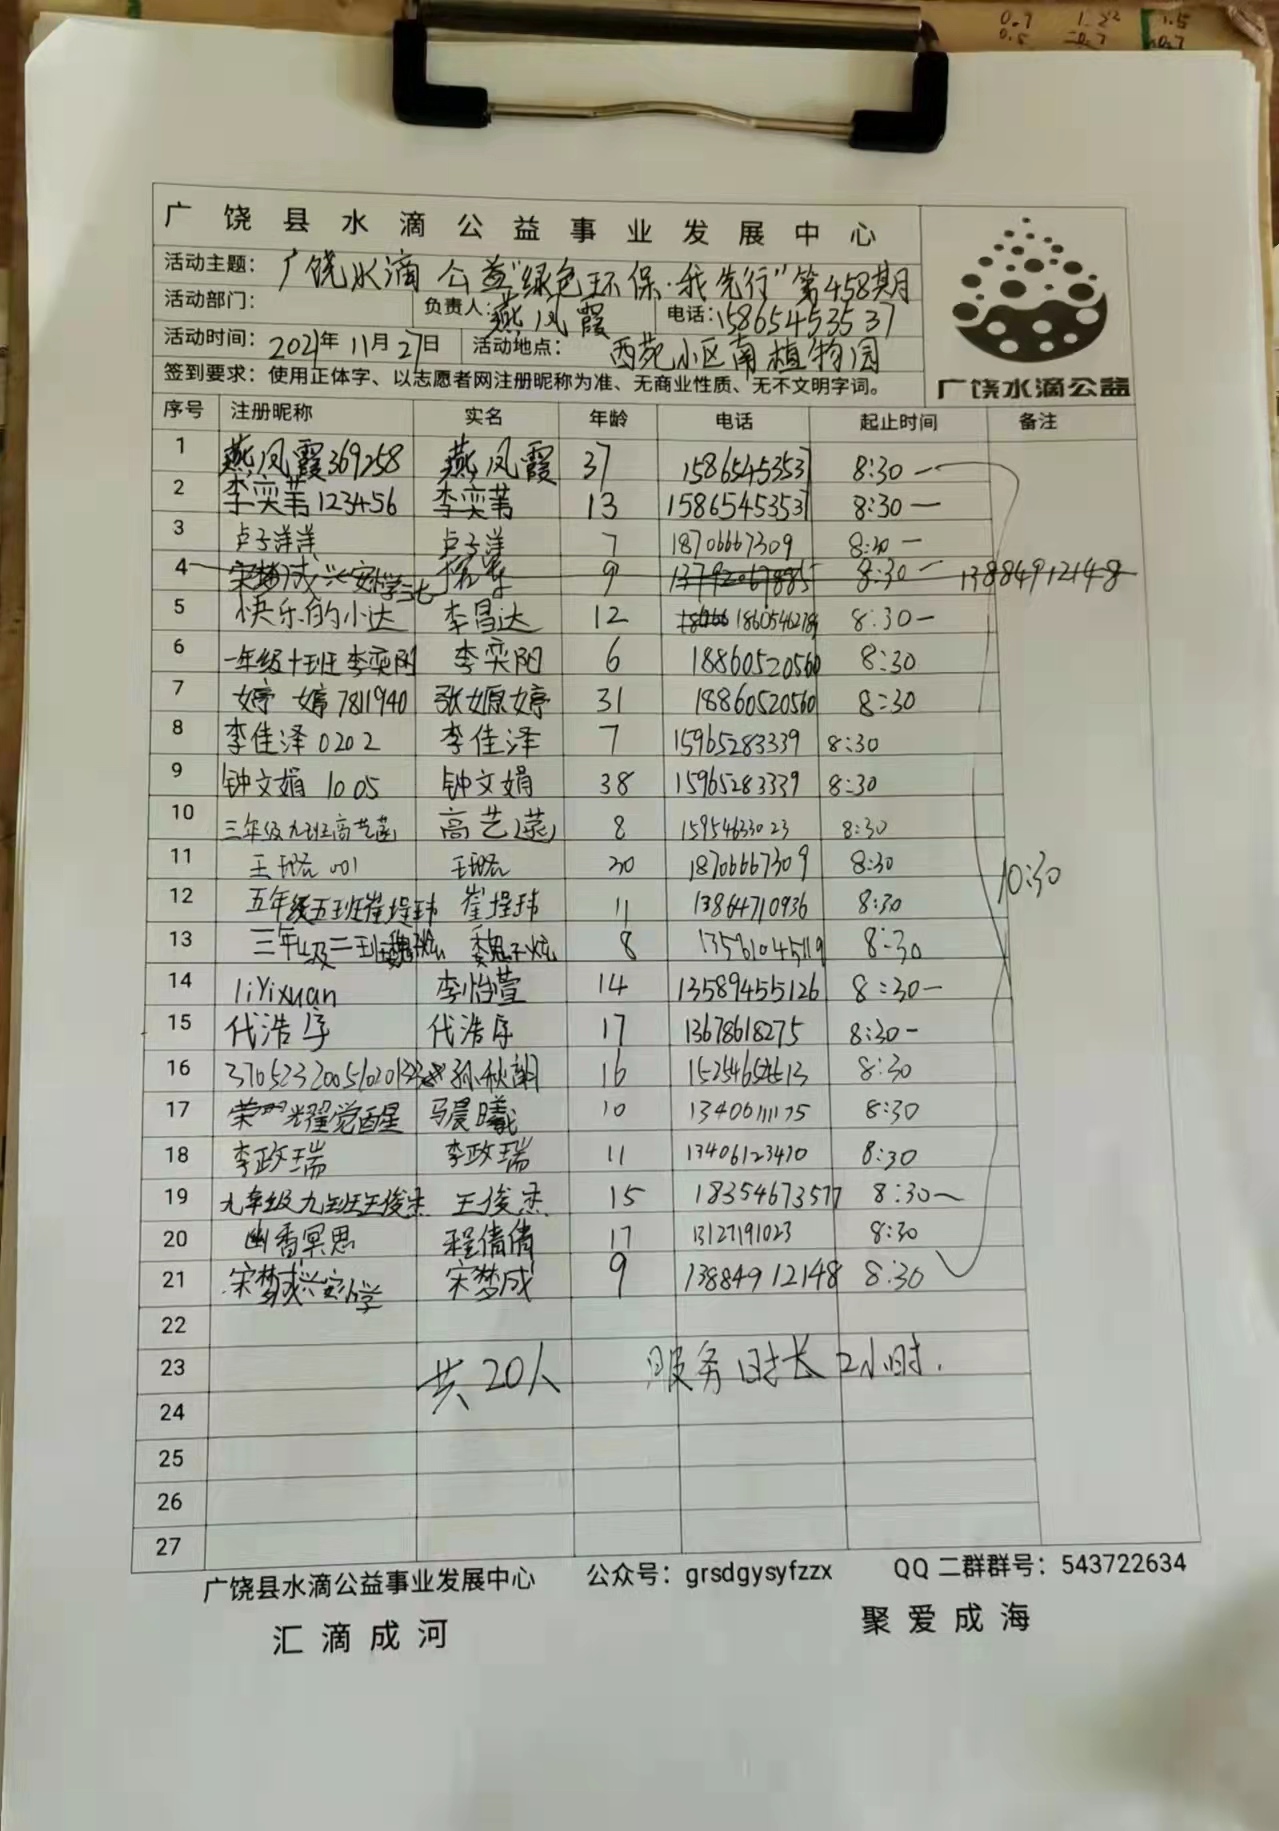 广饶县水滴公益事业发展中心
活动主题：广饶水滴公益"绿色环保·我先行"第458期
活动部门： 负责人：燕凤霞 电话：15865453537
活动时间：2021年11月27日 活动地点：西苑小区南植物园
签到要求：使用正体字、以志愿者网注册昵称为准、无商业性质、无不文明字词。
广饶水滴公益
序号 注册昵称 实名 年龄 电话 起止时间 备注
1 燕凤霞369258 燕凤霞 37 15865453537 8:30—
2 李奕苇123456 李奕苇 13 15865453537 8:30—
3 卢子洋洋 卢子洋 7 18706667309 8:30—
4 宋梦成兴安小学 9 13792067885 8:30— 13884912148
5 快乐的小达 李昌达 12 18605462789 8:30—
6 一年级十班李奕阳 李奕阳 6 18860520560 8:30
7 婷婷7811940 张嫄婷 31 18860520560 8:30
8 李佳泽0202 李佳泽 7 15965283339 8:30
9 钟文娟1005 钟文娟 38 15965283339 8:30
10 三年级九班高艺菡 高艺(菡) 8 15954633023 8:30
11 王璐001 王璐 20 18706667309 8:30
10:30
12 五年级五班崔埕玮 崔埕玮 11 13864710936 8:30
13 三年级二班魏子炫 魏子炫 8 13561045119 8:30
14 liYixuan 李怡萱 14 13589455126 8:30—
15 代浩序 代浩序 17 13678618275 8:30-
16 孙秋朗 16 8:30
17 荣耀觉醒 马晨曦 10 13406111175 8:30
18 李政瑞 李政瑞 11 13406123470 8:30
19 九年级九班王俊杰 王俊杰 15 18354673577 8:30~
20 幽香冥思 程倩倩 17 13127191023 8:30
21 宋梦成兴安小学 宋梦成 9 13884912148 8:30
22
23 共20人 服务时长2小时.
24
25
26
27
广饶县水滴公益事业发展中心 公众号：grsdgysyfzzx QQ二群群号：543722634
汇滴成河 聚爱成海